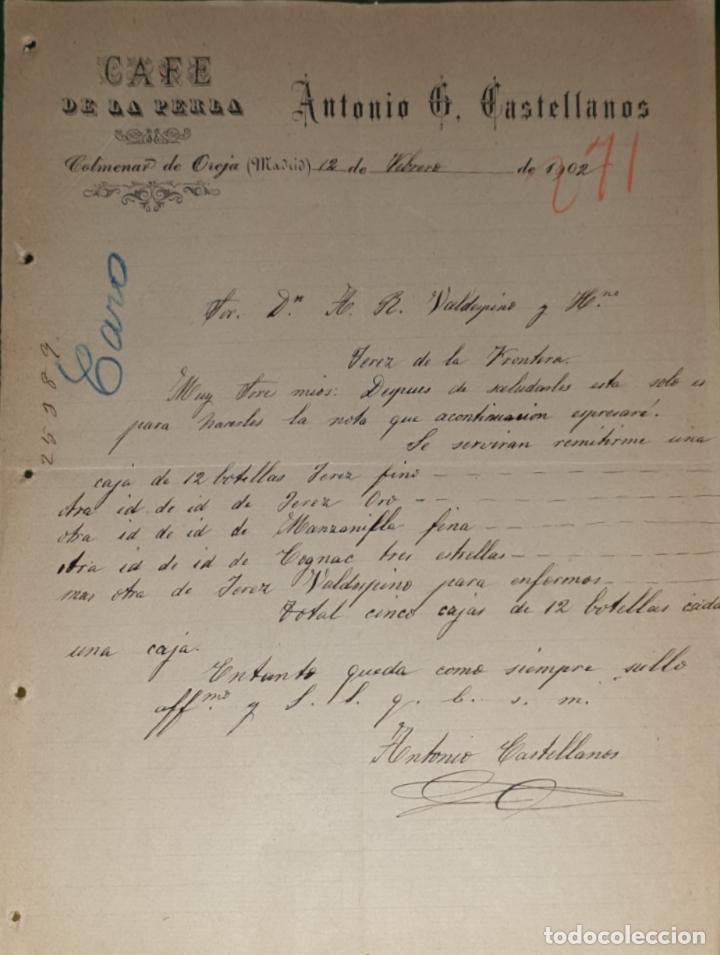 CAFE
DE LA PERLA
Antonio G. Castellanos
Colmenar de Oreja (Madrid) 12 de Febrero de 1902
271
Caro
25989.
Sor. Dn A. R. Valdespino y Hno
Jerez de la Frontera.
Muy Sres mios: Despues de saludarles esta solo es
para hacerles la nota que acontinuacion espresaré.
Se serviran remitirme una
caja de 12 botellas Jerez fino
otra id de id de Jerez Oro
otra id de id de Manzanilla fina
otra id de id de Cognac tres estrellas
mas otra de Jerez Valdespino para enfermos
total cinco cajas de 12 botellas cada
una caja.
Entanto queda como siempre sullo
affmo y S. S. q. b. s. m.
Antonio Castellanos
todocoleccion